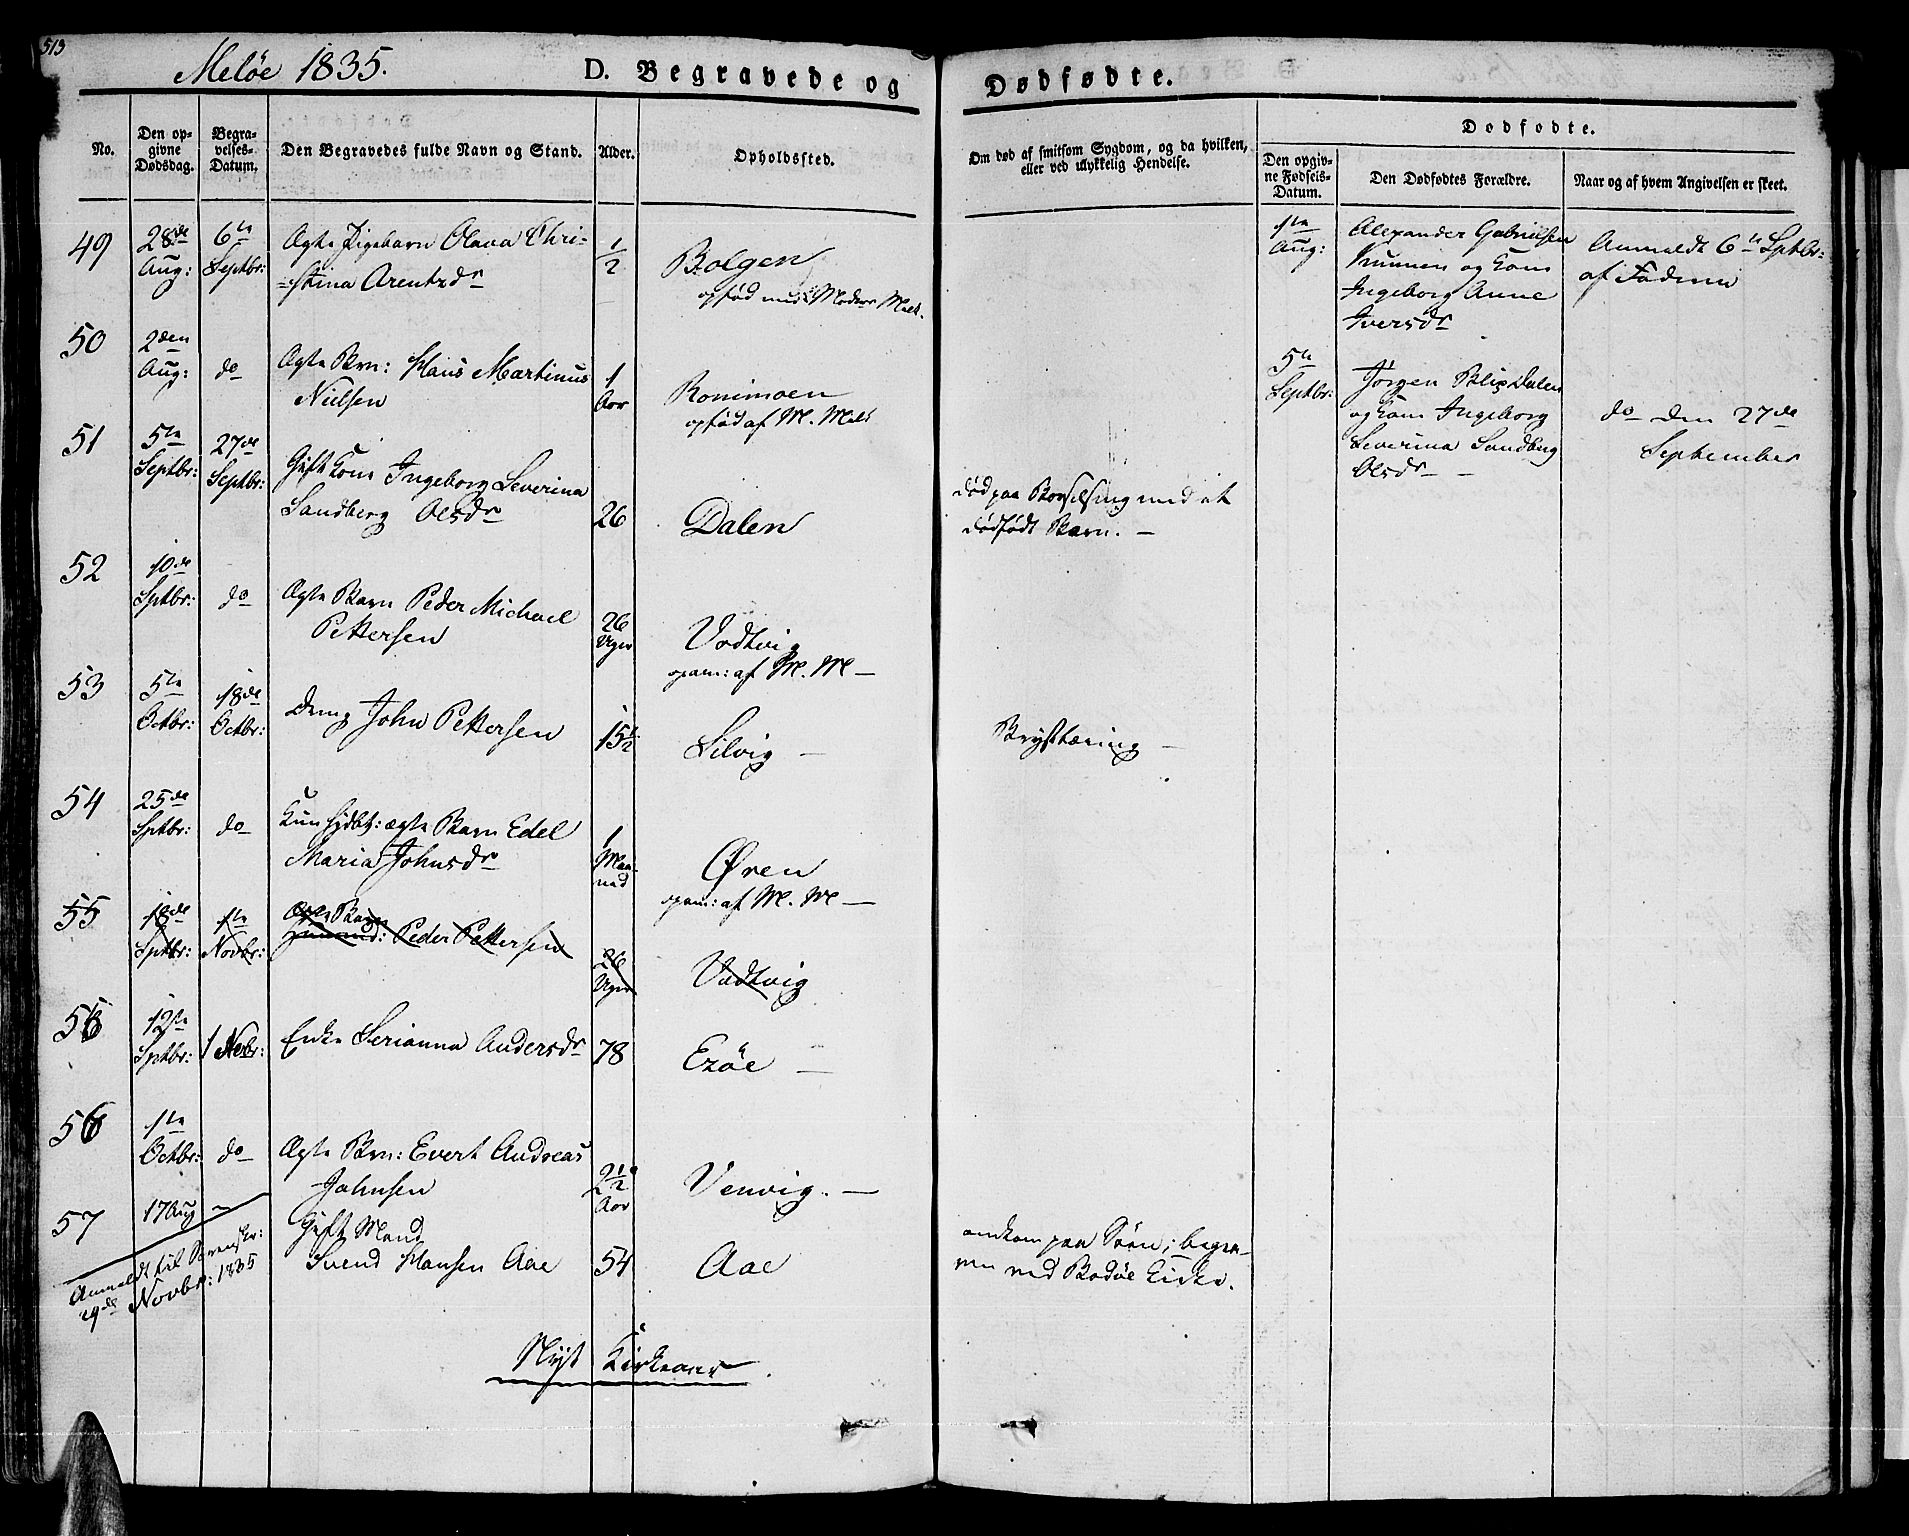 513
Meløe 1835.
D. Begravede og Dødfødte.
No.
Den opgivne Dødsdag.
Begravelses-Datum.
Den Begravedes fulde Navn og Stand.
Alder.
Opholdssted.
Om død af smitsom Sygdom, og da hvilken,
eller ved ulykkelig Hendelse.
Dødfødte.
Den opgivne Fødsels-Datum.
Den Dødfødtes Forældre.
Naar og af hvem Angivelsen er skeet.
49
28de Aug:
6te Septbr:
Ægte Pigebarn Olava Chri-
=stina Arentzdr
1/2
Bolgen
opfød med Moders Melk.
1te Aug:
Alexander Gabrielsen
og Kone
Ingeborg Anne
Iversdr
Anmeldt 6te Sptbr:
af Faderen
50
2den Aug:
do
Ægte Brn: Hans Martinus
Nielsen
1 Aar
Ronimoen
opfød af M. Melk
5te Septbr:
Jørgen Blix Dalen
og Kone Ingeborg
Severina Sandberg
Olsdr —
do den 27de
September
51
5te Septbr:
27de Septbr:
Gift Kone Ingeborg Severina
Sandberg Olsdr
26
Dalen
død paa Barselseng med et
dødfødt Barn. —
52
10de Sptbr:
do
Ægte Barn Peder Michael
Pettersen
26 Uger
Vadtvig
opam: af M. M —
53
5te Octbr:
18de Octbr:
Dreng John Pettersen
15 1/2
Silvig —
Brysttæring —
54
25de Sptbr:
do
Kun hjdbt: ægte Barn Edel
Maria Johnsdr
1 Maa-
ned
Øren
opam: af M. M —
55
18de Sptbr:
1te Novbr:
Ægte Barn
Peder Pettersen
26 Uger
Vadtvig
55
12te Sptbr:
1 Nobr:
Enke Serianna Andersdr
78
Exöe —
56
1te Octbr:
do
Ægte Brn: Evert Andreas
Johnsen
2 1/2 Aar
Venvig. —
57
17 Aug —
Gift Mand
Svend Hansen Aae
54
Aae
omkom paa Søen; begra-
ven ved Bodøe Kirke.
Anmeldt til Sorenskr:
29de Novbr: 1835
Nyt Kirkeaar.